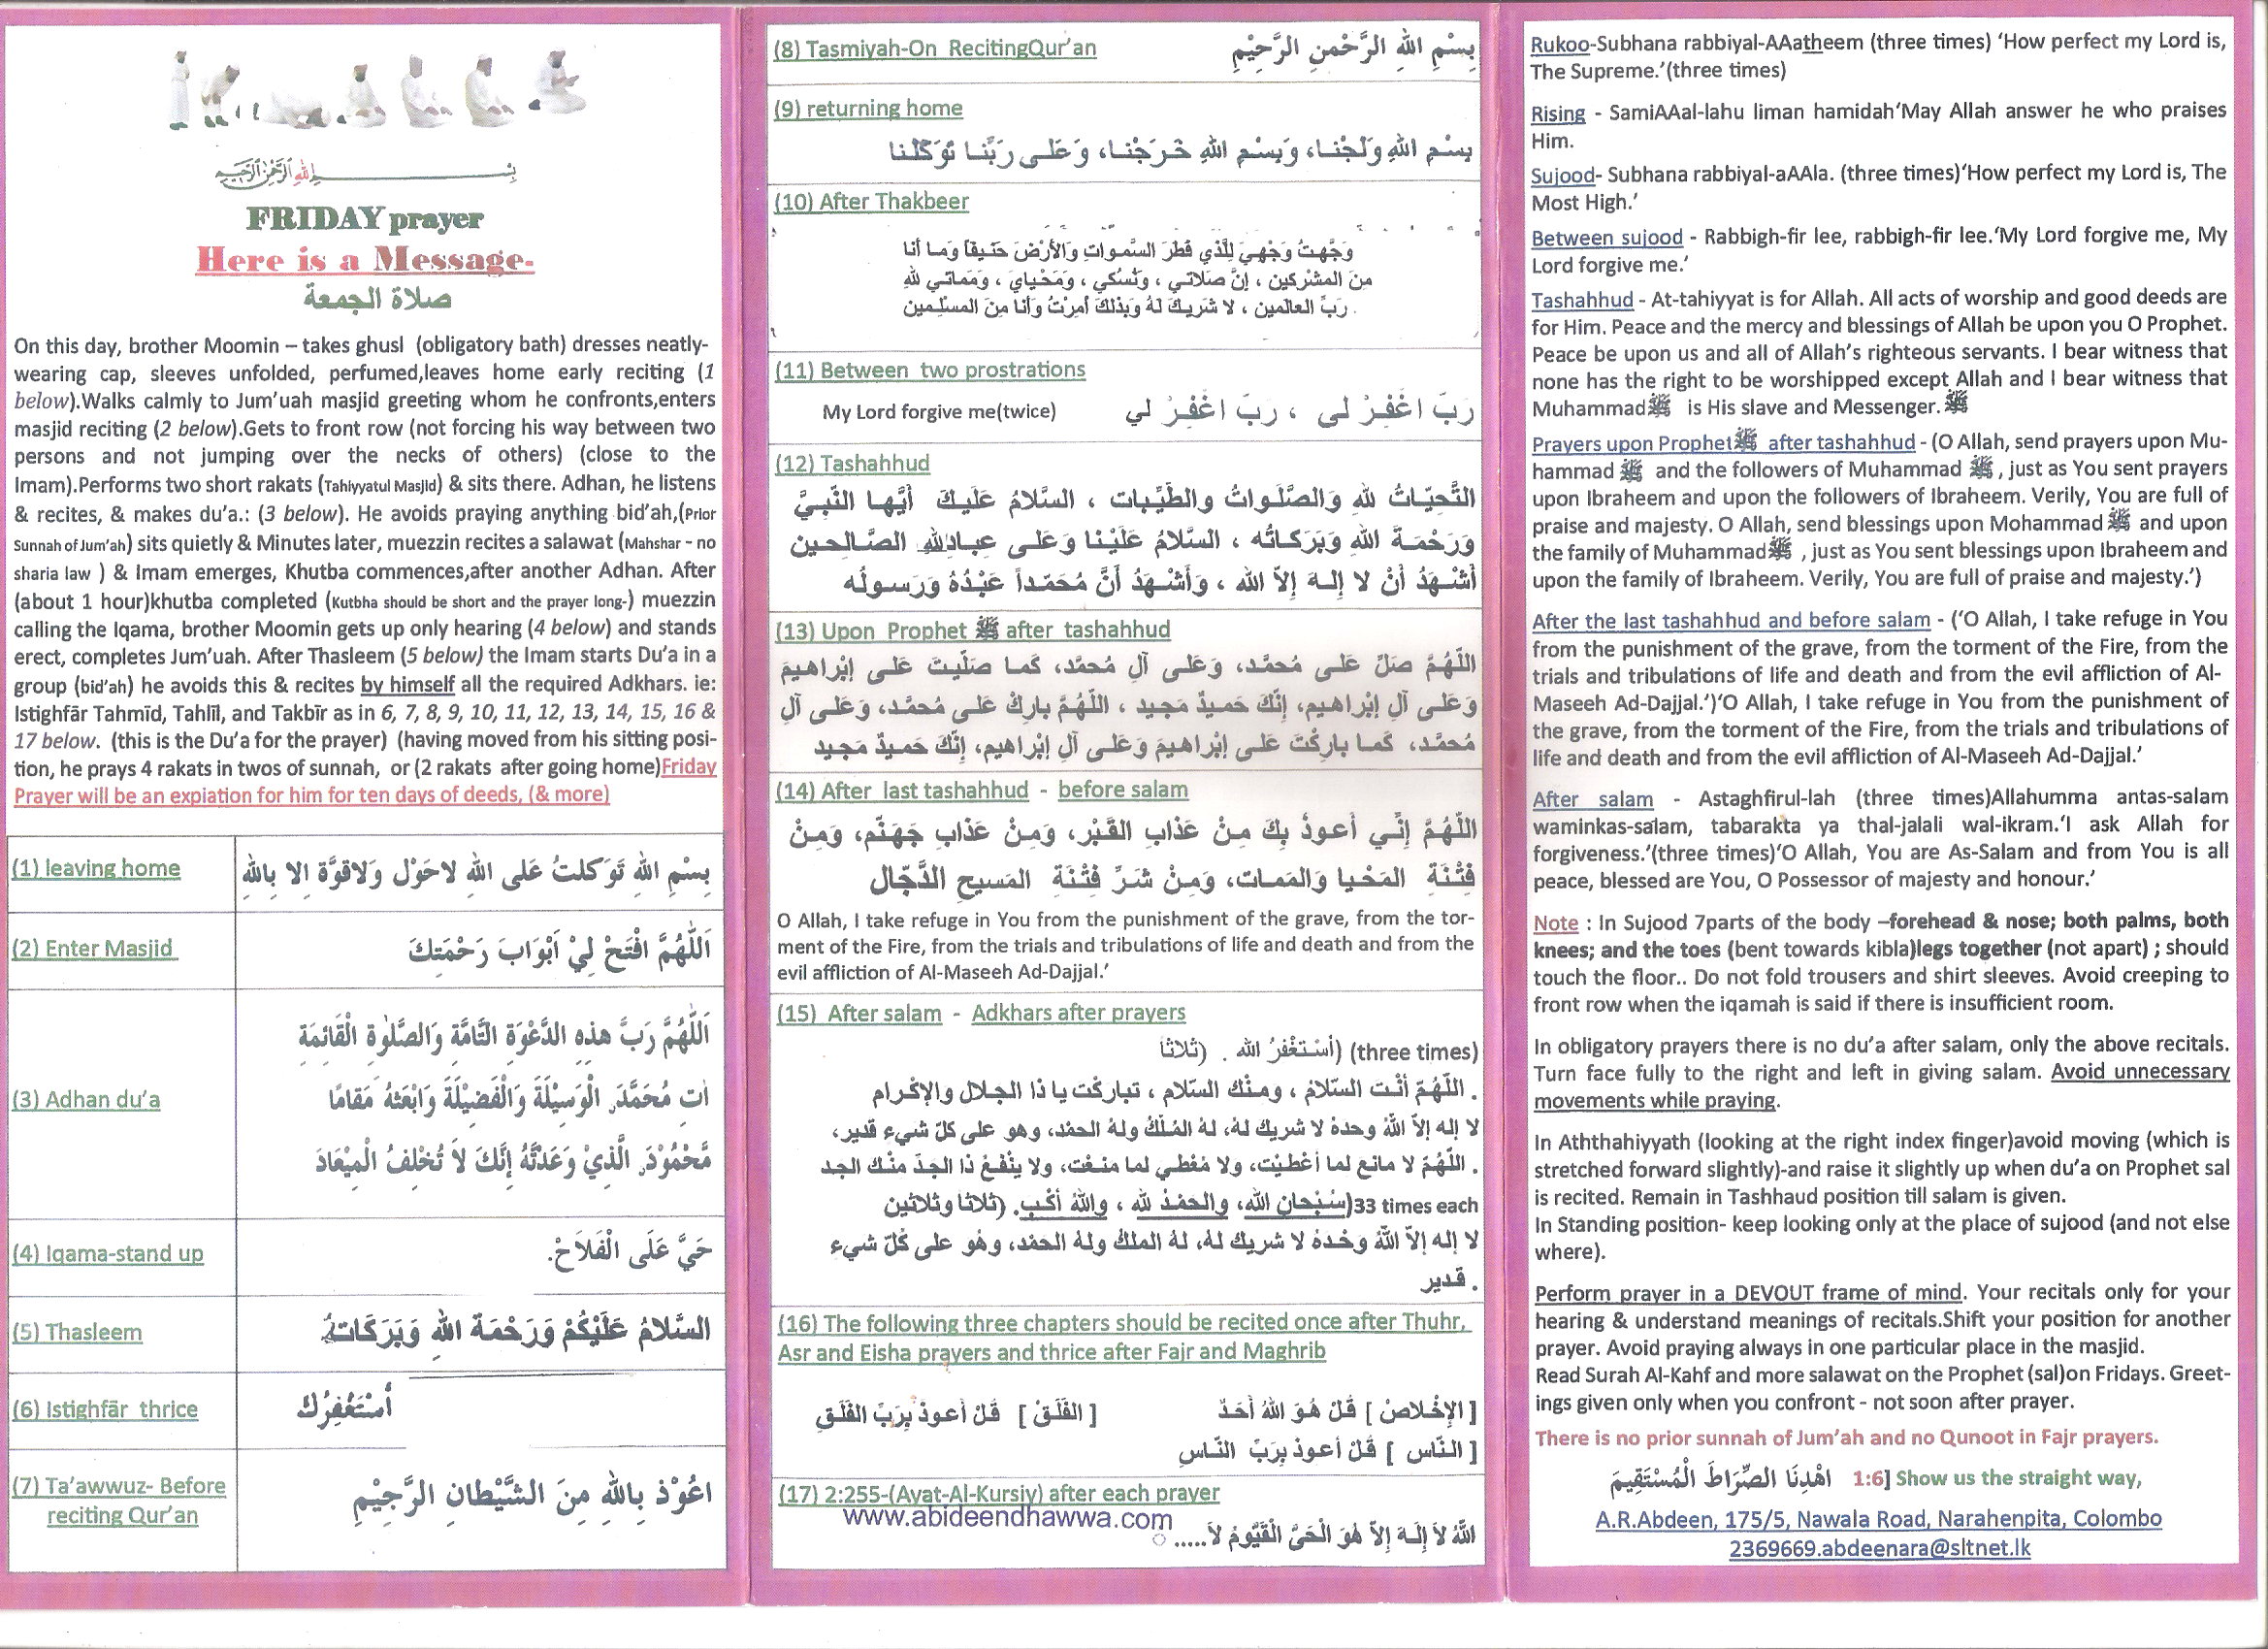 بِسْمِ اللهِ الرَّحْمٰنِ الرَّحِيْمِ
FRIDAY prayer
Here is a Message-
صلاة الجمعة
On this day, brother Moomin – takes ghusl (obligatory bath) dresses neatly-
wearing cap, sleeves unfolded, perfumed,leaves home early reciting (1
below).Walks calmly to Jum'uah masjid greeting whom he confronts,enters
masjid reciting (2 below).Gets to front row (not forcing his way between two
persons and not jumping over the necks of others) (close to the
Imam).Performs two short rakats (Tahiyyatul Masjid) & sits there. Adhan, he listens
& recites, & makes du'a.: (3 below). He avoids praying anything bid'ah,(Prior
Sunnah of Jum'ah) sits quietly & Minutes later, muezzin recites a salawat (Mahshar - no
sharia law ) & Imam emerges, Khutba commences,after another Adhan. After
(about 1 hour)khutba completed (Kutbha should be short and the prayer long-) muezzin
calling the Iqama, brother Moomin gets up only hearing (4 below) and stands
erect, completes Jum'uah. After Thasleem (5 below) the Imam starts Du'a in a
group (bid'ah) he avoids this & recites by himself all the required Adkhars. ie:
Istighfār Tahmīd, Tahlīl, and Takbīr as in 6, 7, 8, 9, 10, 11, 12, 13, 14, 15, 16 &
17 below. (this is the Du'a for the prayer) (having moved from his sitting posi-
tion, he prays 4 rakats in twos of sunnah, or (2 rakats after going home)Friday
Prayer will be an expiation for him for ten days of deeds, (& more)
(1) leaving home
بِسْمِ اللهِ تَوَكلتُ عَلى اللهِ لاحَوْل وَلاقوَّة اِلا بِاللهِ
(2) Enter Masjid
اَللّٰهُمَّ افْتَحْ لِيْ اَبْوَابَ رَحْمَتِكَ
(3) Adhan du'a
اَللّٰهُمَّ رَبَّ هذِهِ الدَّعْوَةِ التَّامَّةِ وَالصَّلٰوةِ الْقَائِمَةِ
اٰتِ مُحَمَّدَ الْوَسِيْلَةَ وَالْفَضِيْلَةَ وَابْعَثْهُ مَقَامًا
مَّحْمُوْدَ الَّذِيْ وَعَدْتَّهُ إِنَّكَ لاَ تُخْلِفُ الْمِيْعَادَ
(4) Iqama-stand up
حَيَّ عَلَى الْفَلاَحْ.
(5) Thasleem
السَّلامُ عَلَيْكُمْ وَرَحْمَةُ اللهِ وَبَرَكَاتهُ
(6) Istighfār thrice
أَسْتَغْفِرُكَ
(7) Ta'awwuz- Before
reciting Qur'an
اعُوْذ بِاللهِ مِنَ الشَّيْطانِ الرَّجِيْمِ
(8) Tasmiyah-On RecitingQur'an
بِسْمِ اللهِ الرَّحْمنِ الرَّحِيْمِ
(9) returning home
بِسْمِ اللهِ وَلَجْنـا، وَبِسْمِ اللهِ خَـرَجْنـا، وَعَلـى رَبِّنـا تَوَكَّلْـنا
(10) After Thakbeer
وَجَّهتُ وَجْهِيَ لِلَّذي فَطَرَ السَّمواتِ وَالأرْضَ حَنيفاً وَمـا أنا
مِنَ المشْرِكين ، إنَّ صَلاتي ، ونُسُكي ، ومَحْياي ، ومَماتي للهِ
رَبِّ العالَمين ، لا شريكَ لهُ وبذلكَ أمِرْتُ وأنا مِنَ المسْلِمين .
(11) Between two prostrations
My Lord forgive me(twice)
رَبِّ اغْفِـرْ لى ، رَبِّ اغْفِـرْ لي
(12) Tashahhud
التَّحِيّـاتُ للهِ وَالصَّلَـواتُ والطَّيِّـبات ، السَّلامُ عَلَيـكَ أَيُّهـا النَّبِـيُّ
وَرَحْمَـةُ اللهِ وَبَرَكـاتُه ، السَّلامُ عَلَيْنـا وَعَلـى عِبـادِ اللهِ الصَّـالحِـين
أَشْـهَدُ أَنْ لا إِلـهَ إِلاّ الله ، وَأَشْـهَدُ أَنَّ مُحَمّـداً عَبْـدُهُ وَرَسـولُه
(13) Upon Prophet ﷺ after tashahhud
اللّهُـمَّ صَلِّ عَلـى مُحمَّـد، وَعَلـى آلِ مُحمَّد، كَمـا صَلَّيـتَ عَلـى إبْراهـيمَ
وَعَلـى آلِ إبْراهـيم، إِنَّكَ حَمـيدٌ مَجـيد ، اللّهُـمَّ بارِكْ عَلـى مُحمَّـد، وَعَلـى آلِ
مُحمَّـد، كَمـا بارِكْتَ عَلـى إبْراهـيمَ وَعَلـى آلِ إبْراهيم، إِنَّكَ حَمـيدٌ مَجـيد
(14) After last tashahhud - before salam
اللّهُـمَّ إِنِّـي أَعوذُ بِكَ مِـنْ عَذابِ القَـبْر، وَمِـنْ عَذابِ جَهَـنَّم، وَمِـنْ
فِتْـنَةِ المَحْـيا وَالمَمـات، وَمِـنْ شَـرِّ فِتْـنَةِ المَسيحِ الدَّجّال
O Allah, I take refuge in You from the punishment of the grave, from the tor-
ment of the Fire, from the trials and tribulations of life and death and from the
evil affliction of Al-Maseeh Ad-Dajjal.'
(15) After salam - Adkhars after prayers
(three times) (أسْـتَغْفِرُ الله . (ثَلاثاً
. اللّهُـمَّ أنْـتَ السَّلامُ ، ومِنْـكَ السَّلام ، تَباركْتَ يا ذا الجَـلالِ والإكْـرام
لا إلهَ إلاّ اللّهُ وحدَهُ لا شريكَ لهُ، لهُ المُـلْكُ ولهُ الحَمْد، وهوَ على كلّ شَيءٍ قَدير،
. اللّهُـمَّ لا مانِعَ لِما أعْطَيْت، ولا مُعْطِيَ لِما مَنَـعْت، ولا يَنْفَـعُ ذا الجَـدِّ مِنْـكَ الجَد
سُـبْحانَ اللهِ، والحَمْـدُ لله ، واللهُ أكْـبَر. (ثَلاثاً وثَلاثين)33 times each
لا إلهَ إلاّ اللّهُ وحْـدَهُ لا شريكَ لهُ، لهُ الملكُ ولهُ الحَمْد، وهُوَ على كُلّ شَيءٍ
. قَـدير
(16) The following three chapters should be recited once after Thuhr,
Asr and Eisha prayers and thrice after Fajr and Maghrib
[ الإِخْـلاصْ ] قُلْ هُوَ اللهُ أَحَـدٌ [ الفَلَـقْ ] قُلْ أَعـوذُ بِرَبِّ الفَلَـقِ
[ الـنّاس ] قُلْ أَعـوذُ بِرَبِّ النّـاسِ
(17) 2:255-(Ayat-Al-Kursiy) after each prayer
www.abideendhawwa.com
اللّهُ لاَ إِلَـهَ إِلاَّ هُوَ الْحَيُّ الْقَيُّومُ لاَ.....
Rukoo-Subhana rabbiyal-AAatheem (three times) 'How perfect my Lord is,
The Supreme.'(three times)
Rising - SamiAAal-lahu liman hamidah'May Allah answer he who praises
Him.
Sujood- Subhana rabbiyal-aAAla. (three times)'How perfect my Lord is, The
Most High.'
Between sujood - Rabbigh-fir lee, rabbigh-fir lee.'My Lord forgive me, My
Lord forgive me.'
Tashahhud - At-tahiyyat is for Allah. All acts of worship and good deeds are
for Him. Peace and the mercy and blessings of Allah be upon you O Prophet.
Peace be upon us and all of Allah's righteous servants. I bear witness that
none has the right to be worshipped except Allah and I bear witness that
Muhammadﷺ is His slave and Messenger.ﷺ
Prayers upon Prophetﷺ after tashahhud - (O Allah, send prayers upon Mu-
hammad ﷺ and the followers of Muhammad ﷺ, just as You sent prayers
upon Ibraheem and upon the followers of Ibraheem. Verily, You are full of
praise and majesty. O Allah, send blessings upon Mohammad ﷺ and upon
the family of Muhammadﷺ , just as You sent blessings upon Ibraheem and
upon the family of Ibraheem. Verily, You are full of praise and majesty.')
After the last tashahhud and before salam - ('O Allah, I take refuge in You
from the punishment of the grave, from the torment of the Fire, from the
trials and tribulations of life and death and from the evil affliction of Al-
Maseeh Ad-Dajjal.')'O Allah, I take refuge in You from the punishment of
the grave, from the torment of the Fire, from the trials and tribulations of
life and death and from the evil affliction of Al-Maseeh Ad-Dajjal.'
After salam - Astaghfirul-lah (three times)Allahumma antas-salam
waminkas-salam, tabarakta ya thal-jalali wal-ikram.'I ask Allah for
forgiveness.'(three times)'O Allah, You are As-Salam and from You is all
peace, blessed are You, O Possessor of majesty and honour.'
Note : In Sujood 7parts of the body –forehead & nose; both palms, both
knees; and the toes (bent towards kibla)legs together (not apart) ; should
touch the floor.. Do not fold trousers and shirt sleeves. Avoid creeping to
front row when the iqamah is said if there is insufficient room.
In obligatory prayers there is no du'a after salam, only the above recitals.
Turn face fully to the right and left in giving salam. Avoid unnecessary
movements while praying.
In Aththahiyyath (looking at the right index finger)avoid moving (which is
stretched forward slightly)-and raise it slightly up when du'a on Prophet sal
is recited. Remain in Tashhaud position till salam is given.
In Standing position- keep looking only at the place of sujood (and not else
where).
Perform prayer in a DEVOUT frame of mind. Your recitals only for your
hearing & understand meanings of recitals.Shift your position for another
prayer. Avoid praying always in one particular place in the masjid.
Read Surah Al-Kahf and more salawat on the Prophet (sal)on Fridays. Greet-
ings given only when you confront - not soon after prayer.
There is no prior sunnah of Jum'ah and no Qunoot in Fajr prayers.
اهْدِنَا الصِّرَاطَ الْمُسْتَقِيمَ 1:6] Show us the straight way,
A.R.Abdeen, 175/5, Nawala Road, Narahenpita, Colombo
2369669.abdeenara@sltnet.lk